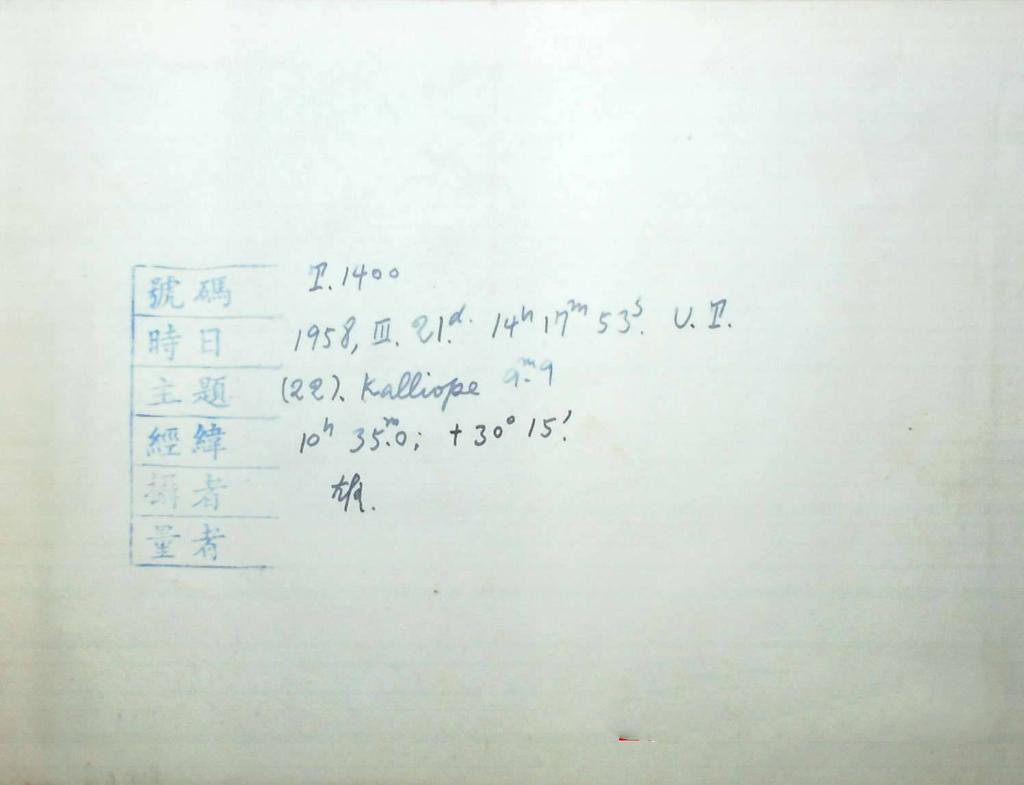 號碼 T. 1400
時日 1958, III. 21.ᵈ 14ʰ 17ᵐ 53ˢ. U. T.
主題 (22). Kalliope 9ᵐ.9
經緯 10ʰ 35ᵐ.0; +30° 15'.
攝者
量者